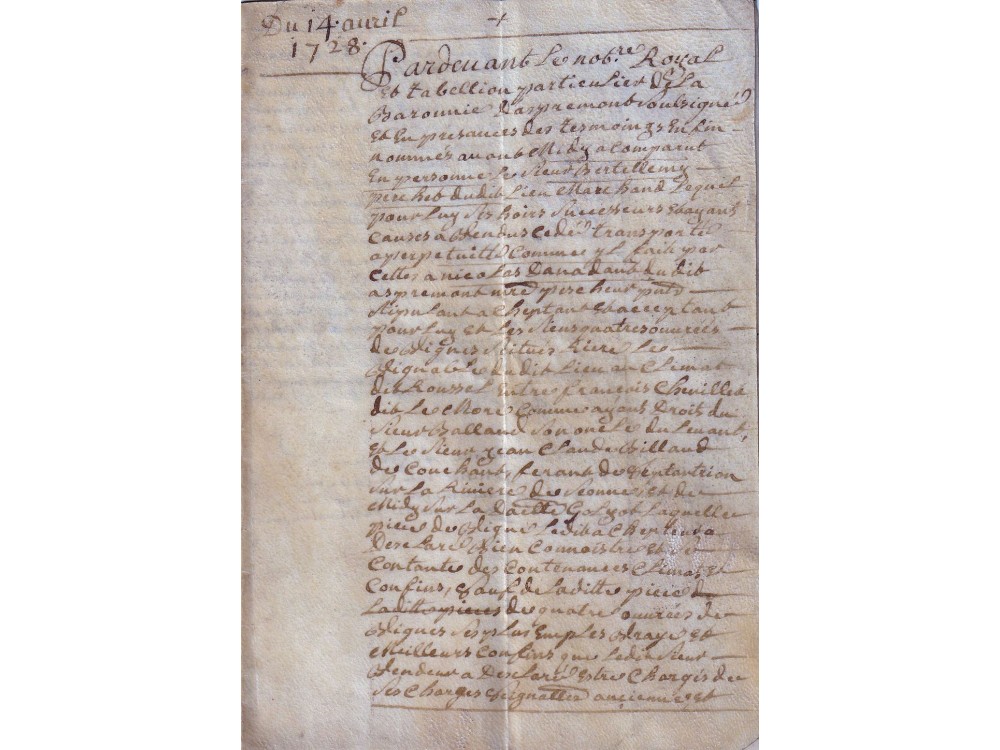 Du 14 avril
1728.
Pardevant Le not.re Royal
Et tabellion particulier De La
Baronnie Daspremont soubsigné
Et En presances des tesmoings En fin
nommés avant Midy a Comparut
En personne Le sieur Bertillemy
dudit Lieu Marchand Lequel
pour Luy ses hoirs successeurs Et ayans
Causes a Vendus cedé transporté
a perpetuitté Comme yl fait par
Cettes a nicolas Danadant du dit
aspremont
stipulant acheptant Et acceptant
pour Luy Et Les siens quatres ouvrées
de Vignes scitues Riere Le
Vignoble dudit Lieu au Climat
dit Roussel Entre françois Chevillea
dit Le More Comme ayant Droit du
sieur Balland son oncle du Levant,
Et Le sieur jean Claude Billand
de Couchant, ferant de
sur La Riviere de Et de
Midy sur La Laquelle
piece de Vigne Ledit achepteur a
Desclaré Bien Connoistre Et
Contante des Contenances Climat Et
Confins, sauf de Laditte piece de
Laditte pieces de quatre ouvrées de
Vignes ses plus Emples Vraye Et
Meilleurs Confins que Ledit sieur
Vendeur a Desclaré Estre Chargés de
ses Charges ancienne Et